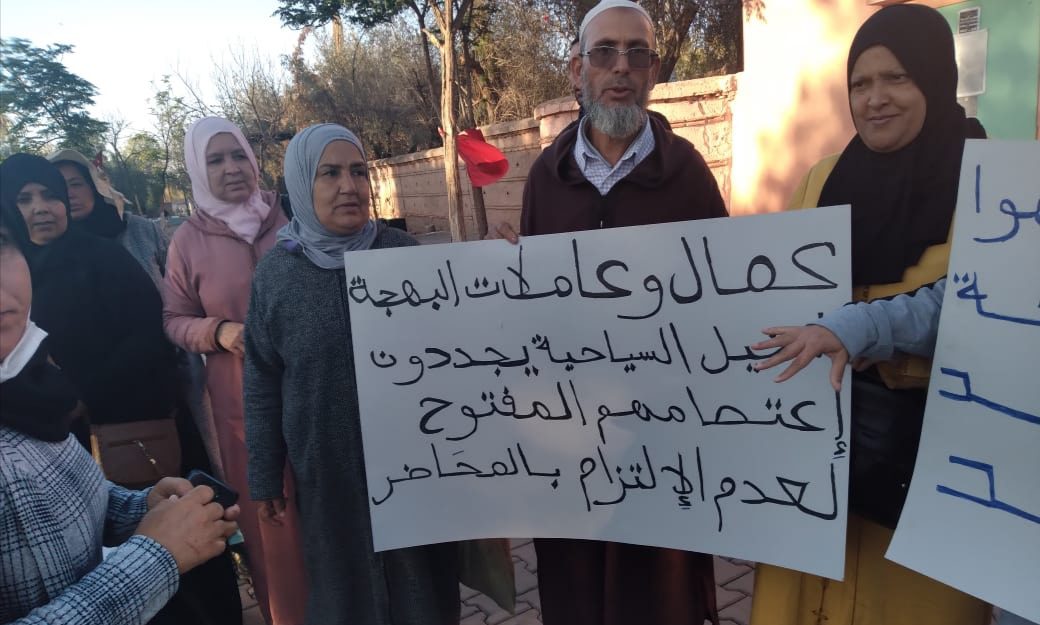 عمال وعاملات البهجة
السياحية يجددون
إعتصامهم المفتوح
لعدم الإلتزام بالمحَاضر